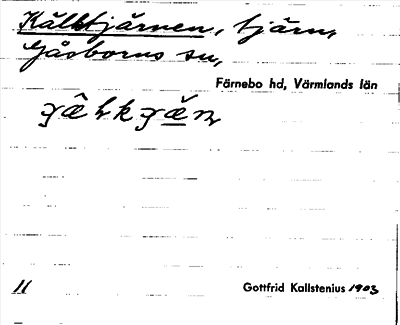 Källtjärnen, tjärn,
Gåsborns sn,
Färnebo hd, Värmlands län
11
Gottfrid Kallstenius 1903